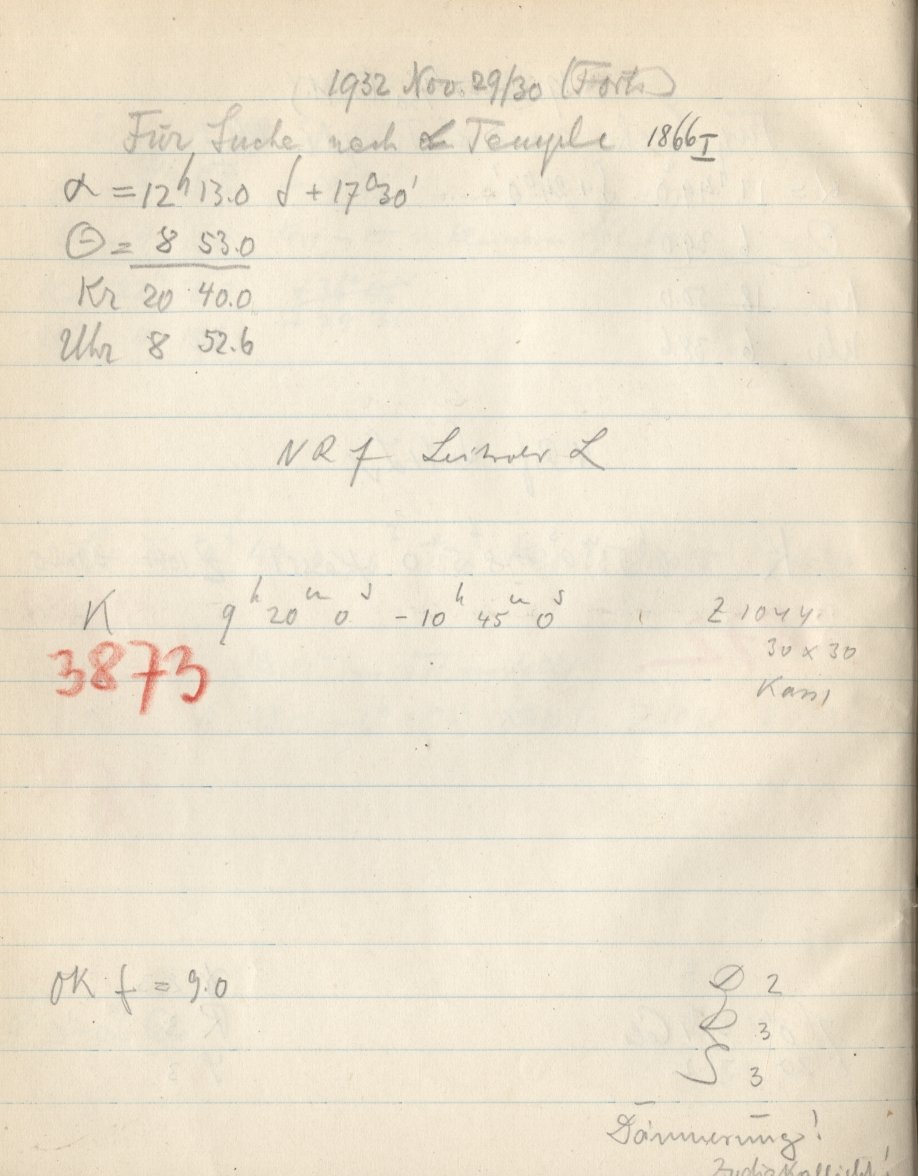 1932 Nov. 29/30 (Forts.)
Für Suche nach Temple 1866 I
α = 12h 13.0 δ + 17° 30'
Θ = 8 53.0
Kr 20 40.0
Uhr 8 52.6
NR f L
K 9h 20m 0s - 10h 45m 0s Z 1044
30 x 30
Kass
3873
OK f = 9.0
2
3
S 3
Dämmerung!
Zodiakallicht!